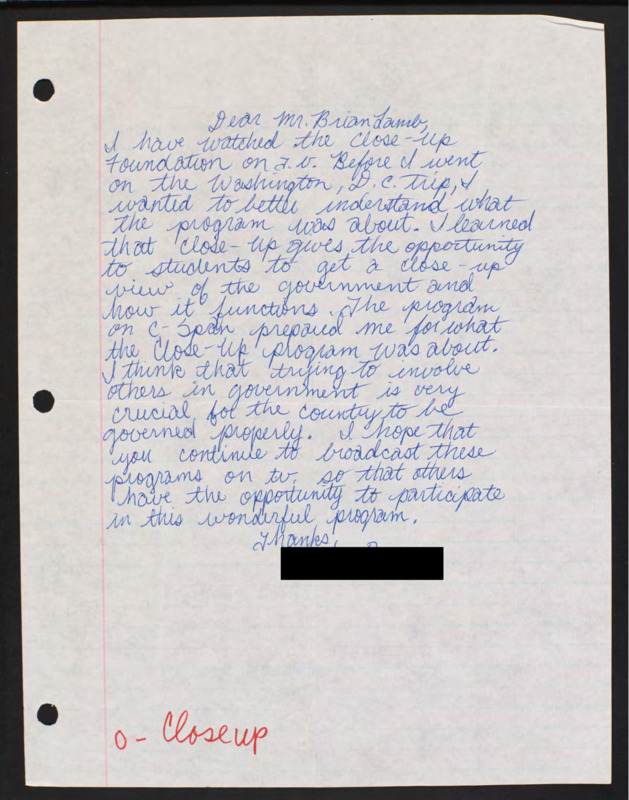 Dear Mr. Brian Lamb,
I have watched the Close-Up
Foundation on T.V. Before I went
on the Washington, D.C. Trip, I
wanted to better understand what
the program was about. I learned
that close-up gives the opportunity
to students to get a close-up
view of the government and
how it functions. The program
on C-Span prepared me for what
the Close-Up program was about.
I think that trying to involve
others in government is very
crucial for the country to be
governed properly. I hope that
you continue to broadcast these
programs on tv. so that others
have the opportunity to participate
in this wonderful program.
Thanks,
O- Closeup